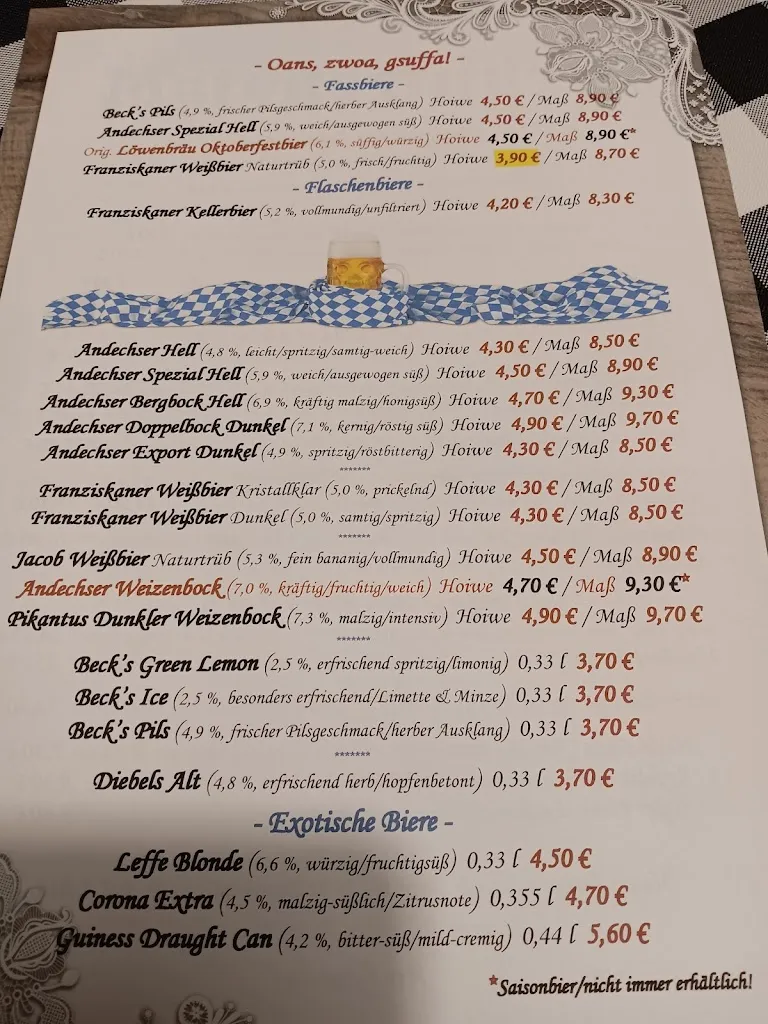 - Oans, zwoa, gsuffa! -
- Fassbiere -
Beck's Pils (4,9 %, frischer Pilsgeschmack/herber Ausklang) Hoiwe 4,50 € / Maß 8,90 €
Andechser Spezial Hell (5,9 %, weich/ausgewogen süß) Hoiwe 4,50 € / Maß 8,90 €
Orig. Löwenbräu Oktoberfestbier (6,1 %, süffig/würzig) Hoiwe 4,50 € / Maß 8,90 €*
Franziskaner Weißbier Naturtrüb (5,0 %, frisch/fruchtig) Hoiwe 3,90 € / Maß 8,70 €
- Flaschenbiere -
Franziskaner Kellerbier (5,2 %, vollmundig/unfiltriert) Hoiwe 4,20 € / Maß 8,30 €
Andechser Hell (4,8 %, leicht/spritzig/samtig-weich) Hoiwe 4,30 € / Maß 8,50 €
Andechser Spezial Hell (5,9 %, weich/ausgewogen süß) Hoiwe 4,50 € / Maß 8,90 €
Andechser Bergbock Hell (6,9 %, kräftig malzig/honigsüß) Hoiwe 4,70 € / Maß 9,30 €
Andechser Doppelbock Dunkel (7,1 %, kernig/röstig süß) Hoiwe 4,90 € / Maß 9,70 €
Andechser Export Dunkel (4,9 %, spritzig/röstbitterig) Hoiwe 4,30 € / Maß 8,50 €
*******
Franziskaner Weißbier Kristallklar (5,0 %, prickelnd) Hoiwe 4,30 € / Maß 8,50 €
Franziskaner Weißbier Dunkel (5,0 %, samtig/spritzig) Hoiwe 4,30 € / Maß 8,50 €
*******
Jacob Weißbier Naturtrüb (5,3 %, fein bananig/vollmundig) Hoiwe 4,50 € / Maß 8,90 €
Andechser Weizenbock (7,0 %, kräftig/fruchtig/weich) Hoiwe 4,70 € / Maß 9,30 €*
Pikantus Dunkler Weizenbock (7,3 %, malzig/intensiv) Hoiwe 4,90 € / Maß 9,70 €
*******
Beck's Green Lemon (2,5 %, erfrischend spritzig/limonig) 0,33 l 3,70 €
Beck's Ice (2,5 %, besonders erfrischend/Limette & Minze) 0,33 l 3,70 €
Beck's Pils (4,9 %, frischer Pilsgeschmack/herber Ausklang) 0,33 l 3,70 €
*******
Diebels Alt (4,8 %, erfrischend herb/hopfenbetont) 0,33 l 3,70 €
- Exotische Biere -
Leffe Blonde (6,6 %, würzig/fruchtigsüß) 0,33 l 4,50 €
Corona Extra (4,5 %, malzig-süßlich/Zitrusnote) 0,355 l 4,70 €
Guiness Draught Can (4,2 %, bitter-süß/mild-cremig) 0,44 l 5,60 €
*Saisonbier/nicht immer erhältlich!